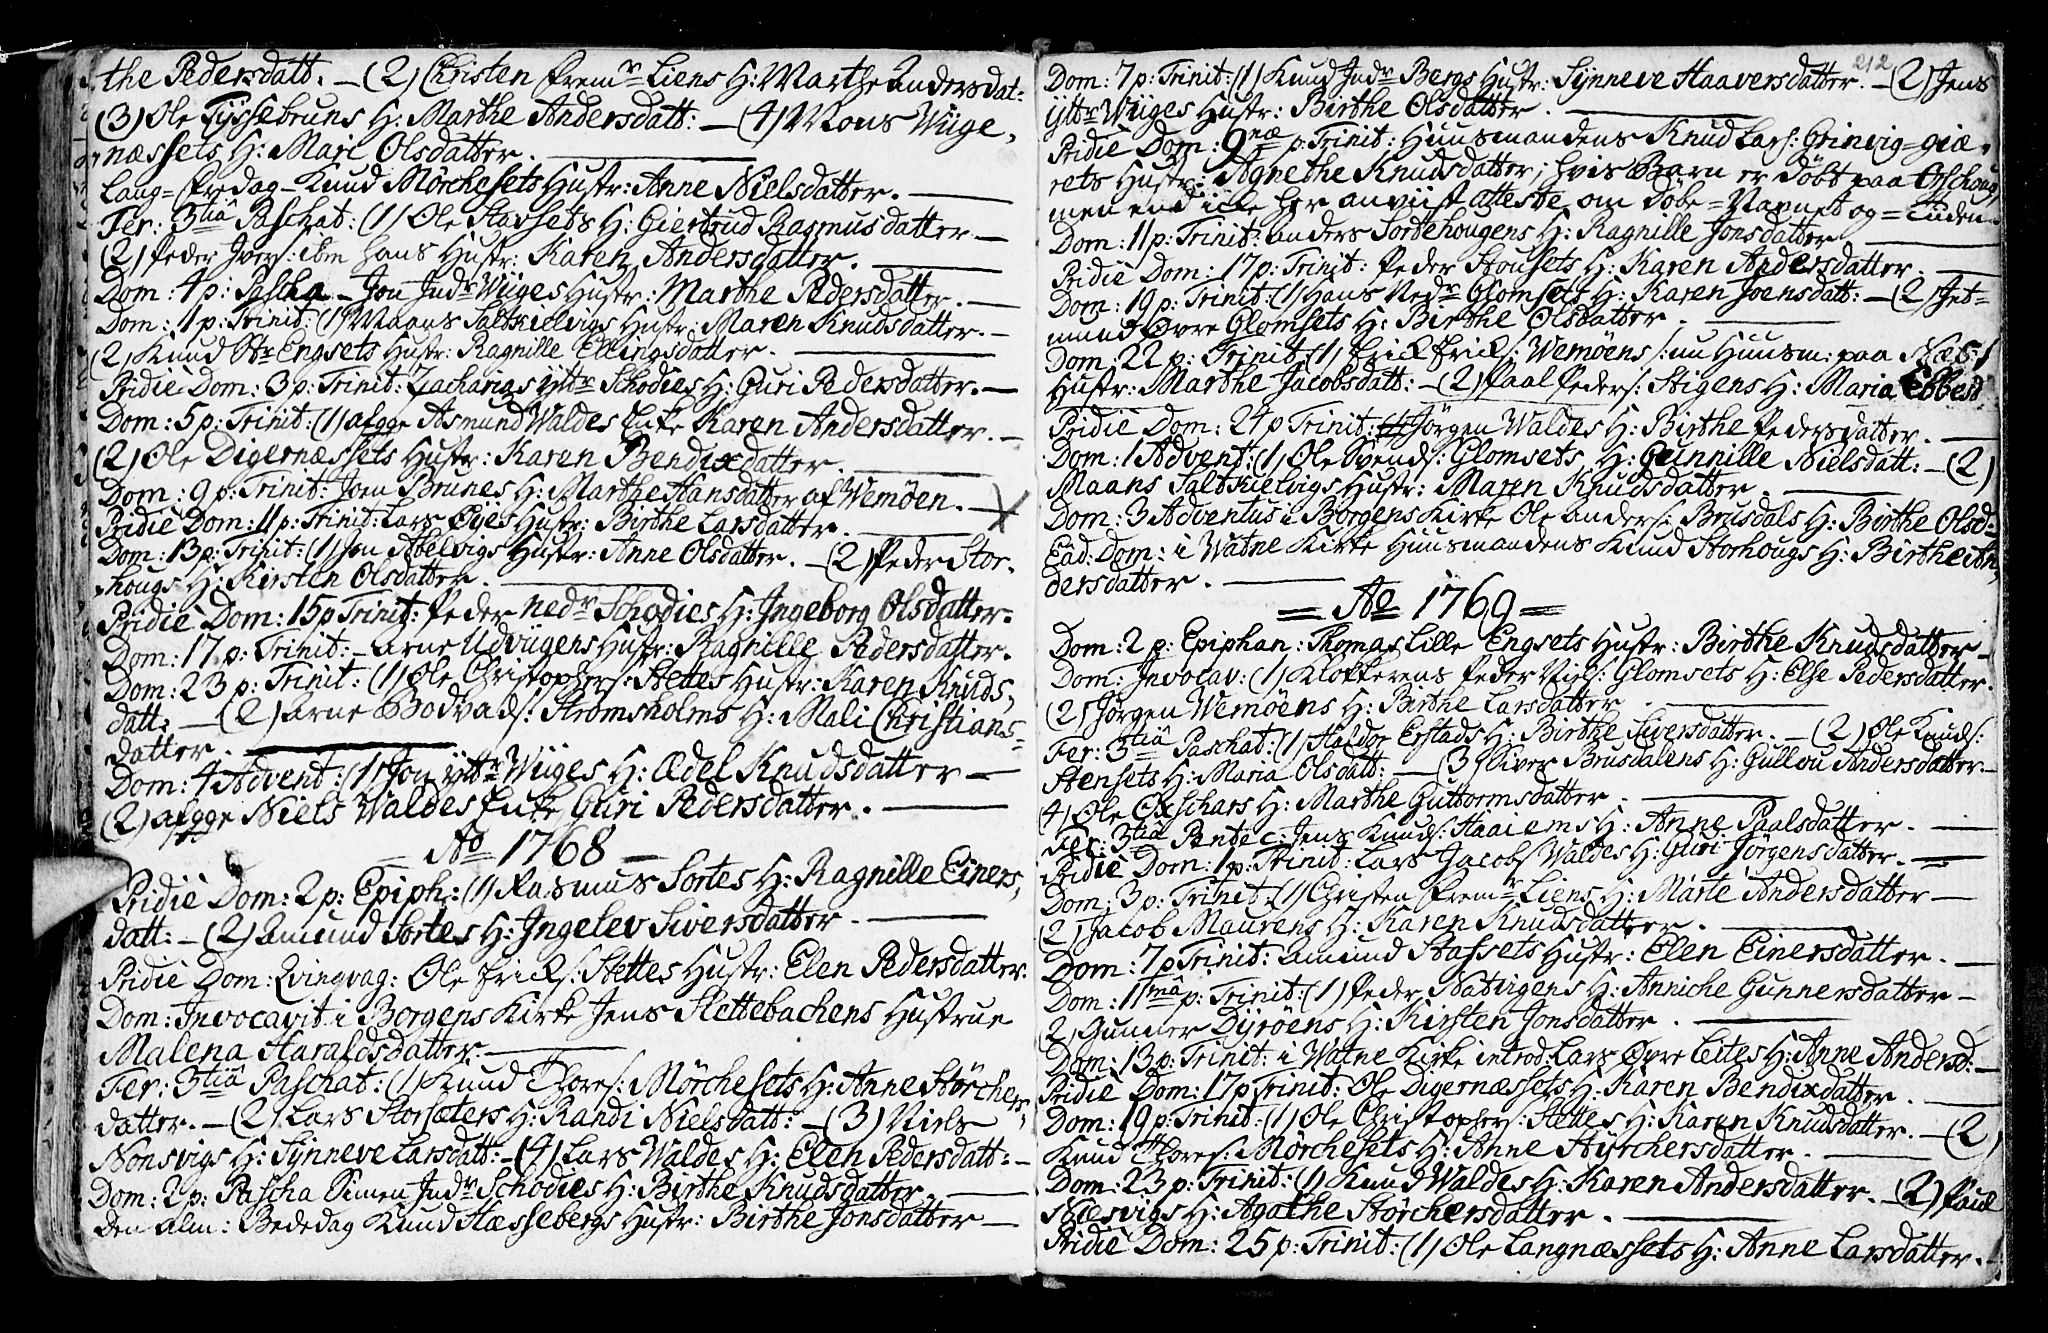 the Pedersdatt. – (2) Christen fremr Liens H: Marthe Andersdat:
(3) Ole Tÿssebruns H: Marthe Andersdatt: – (4) Mons Wiige-
næssets H: Mari Olsdatter.
Lang-fredag – Knud Mörchesets Hustr: Anne Nielsdatter.
Fer: 3tiâ Paschat: (1) Ole Stavsets H: Giertrud Rasmusdatter –
(2) Peder Ivers: ibm hans Hustr: Karen Andersdatter.
Dom: 4 p: Pascha – Jon Indr Wiiges Hustr: Marthe Pedersdatter.
Dom: 1 p: Trinit: (1) Maans Saltkielvigs Hustr: Maren Knudsdatter. –
(2) Knud Str Engsets Hustr: Ragnille Ellingsdatter.
Pridie Dom: 3 p: Trinit: Zacharias ÿttr Schodies H: Guri Pedersdatter. –
Dom: 5 p: Trinit: (1) afgge Asmund Waldes Enke Karen Andersdatter. –
(2) Ole Digernæssets Hustr: Karen Bendixdatter.
Dom: 9 p: Trinit: Joen Brunes H: Marthe Hansdatter af Wemöen. –
Pridie Dom: 11 p: Trinit: Lars Öÿes Hustr: Birthe Larsdatter.
Dom: 13 p: Trinit: (1) Jon Abelvigs Hustr: Anne Olsdatter. – (2) Peder Stor-
hougs H: Kirsten Olsdatter.
Pridie Dom: 15 p Trinit: Peder nedr Schodies H: Ingeborg Olsdatter.
Dom: 17 p: Trinit: – Arne Udviigens Hustr: Ragnille Pedersdatter.
Dom: 23 p: Trinit: (1) Ole Christophers: Stettes Hustr: Karen Knuds-
datt: – (2) Arne Bodvads: Strømsholms H: Mali Christians-
datter.
Dom: 4 Advent: (1) Jon ÿttr Wiiges H: Ædel Knudsdatter –
(2) afgge Niels Waldes Enke Guri Pedersdatter.
– Ao 1768 –
Pridie Dom: 2 p: Epiph: (1) Rasmus Sortes H: Ragnille Einers-
datt: – (2) Amund Sortes H: Ingelev Siversdatter
Pridie Dom: Qvinqvag: Ole Erichs: Stettes Hustr: Elen Pedersdatter.
Dom: Invocavit i Borgens Kirke Jens Slettebachens Hustrue
Malena Haraldsdatter.
Fer: 3tiâ Paschat: (1) Knud Thores: Mörchesets H: Anne Störchers-
datter. – (2) Lars Storsæters H: Randi Nielsdatt: – (3) Niels
Nonsvigs H: Sÿnneve Larsdatt: – (4) Lars Waldes H: Elen Pedersdatt: –
Dom: 2 p: Pascha Simen Indr Schodies H: Birthe Knudsdatter.
Den Alm: Bededag Knud Hæssebergs Hustr: Birthe Jonsdatter –
212
Dom: 7 p: Trinit: (1) Knud Indr Bergs Hustr: Sÿnneve Haaversdatter. – (2) Jens
ÿttr Wiiges Hustr: Birthe Olsdatter.
Pridie Dom: 9næ p: Trinit: Huusmandens Knud Lars: Grinvig-giæ-
rets Hustr: Agnethe Knudsdatter; hvis Barn er døbt paa
men end icke her anviist atteste om Döbe-Navnet og
Dom: 11 p: Trinit: Anders Sortehougens H: Ragnille Jonsdatter
Pridie Dom: 17 p: Trinit: Peder Stousets H: Karen Andersdatter.
Dom: 19 p: Trinit: (1) Hans Nedr Glomsets H: Karen Joensdatt: – (2) Jet-
mund Øvre Glomsets H: Birthe Olsdatter.
Dom: 22 p: Trinit: (1) Erick Ericks: Wemöens /: nu Huusm: paa Næs :/
Hustr: Marthe Jacobsdatt: – (2) Paal Peders: Stigens H: Maria Ebbesd:
Pridie Dom: 24 p Trinit: Jörgen Waldes H: Birthe Pedersdatter.
Dom: 1 Advent: (1) Ole Svends: Glomsets H: Gunnille Nielsdatt: – (2)
Maans Saltkielvigs Hustr: Maren Knudsdatter.
Dom: 3 Adventus i Borgens Kirke Ole Anders: Brusdals H: Birthe Olsd:
Ead: Dom: i Watne Kirke Huusmandens Knud Storhougs H: Birthe An-
dersdatter.
= Ao 1769 =
Dom: 2 p: Epiphan: Thomas Lille Engsets Hustr: Birthe Knudsdatter –
Dom: Invocav: (1) Klokkerens Peder Niels: Glomsets H: Else Pedersdatter.
(2) Jörgen Wemöens H: Birthe Larsdatter
Fer: 3tiâ Paschat: (1) Haldor Erstads H: Birthe Siversdatter. – (2) Ole Knuds:
Stensets H: Maria Olsdatt: – (3) Siver Brusdalens H: Gullou Andersdatter. –
4) Ole Oxschars H: Marthe Guttormsdatter.
Fer: 3tiâ Pentec: Jens Knuds: Haaiems H: Anne Paalsdatter.
Pridie Dom: 1 p: Trinit: Lars Jacobs Waldes H: Guri Jörgensdatter.
Dom: 3 p: Trinit: (1) Christen fremr Liens H: Marte Andersdatter –
(2) Jacob Maurens H: Karen Knudsdatter.
Dom: 7 p Trinit: Amund Stafsets Hustr: Elen Einersdatter.
Dom: 11ma p: Trinit: (1) Peder Natvigens H: Anniche Gunnersdatter –
2) Gunner Dÿröens H: Kirsten Jonsdatter.
Dom: 13 p: Trinit: i Watne Kirke introd: Lars Øvre Eites H: Anne Andersd: –
Pridie Dom: 17 p Trinit: Ole Digernæssets H: Karen Bendixdatter.
Dom: 19 p: Trinit: (1) Ole Christophers: Stettes H: Karen Knudsdatter. – (2)
Knud Thores: Mörchesets H: Anne Stÿrchersdatter.
Dom: 23 p: Trinit: (1) Knud Waldes H: Karen Andersdatter. – (2) Poul
Næsvigs H: Agathe Störchersdatter.
Pridie Dom: 25 p: Trinit: (1) Ole Langnæssets H: Anne Larsdatter. –